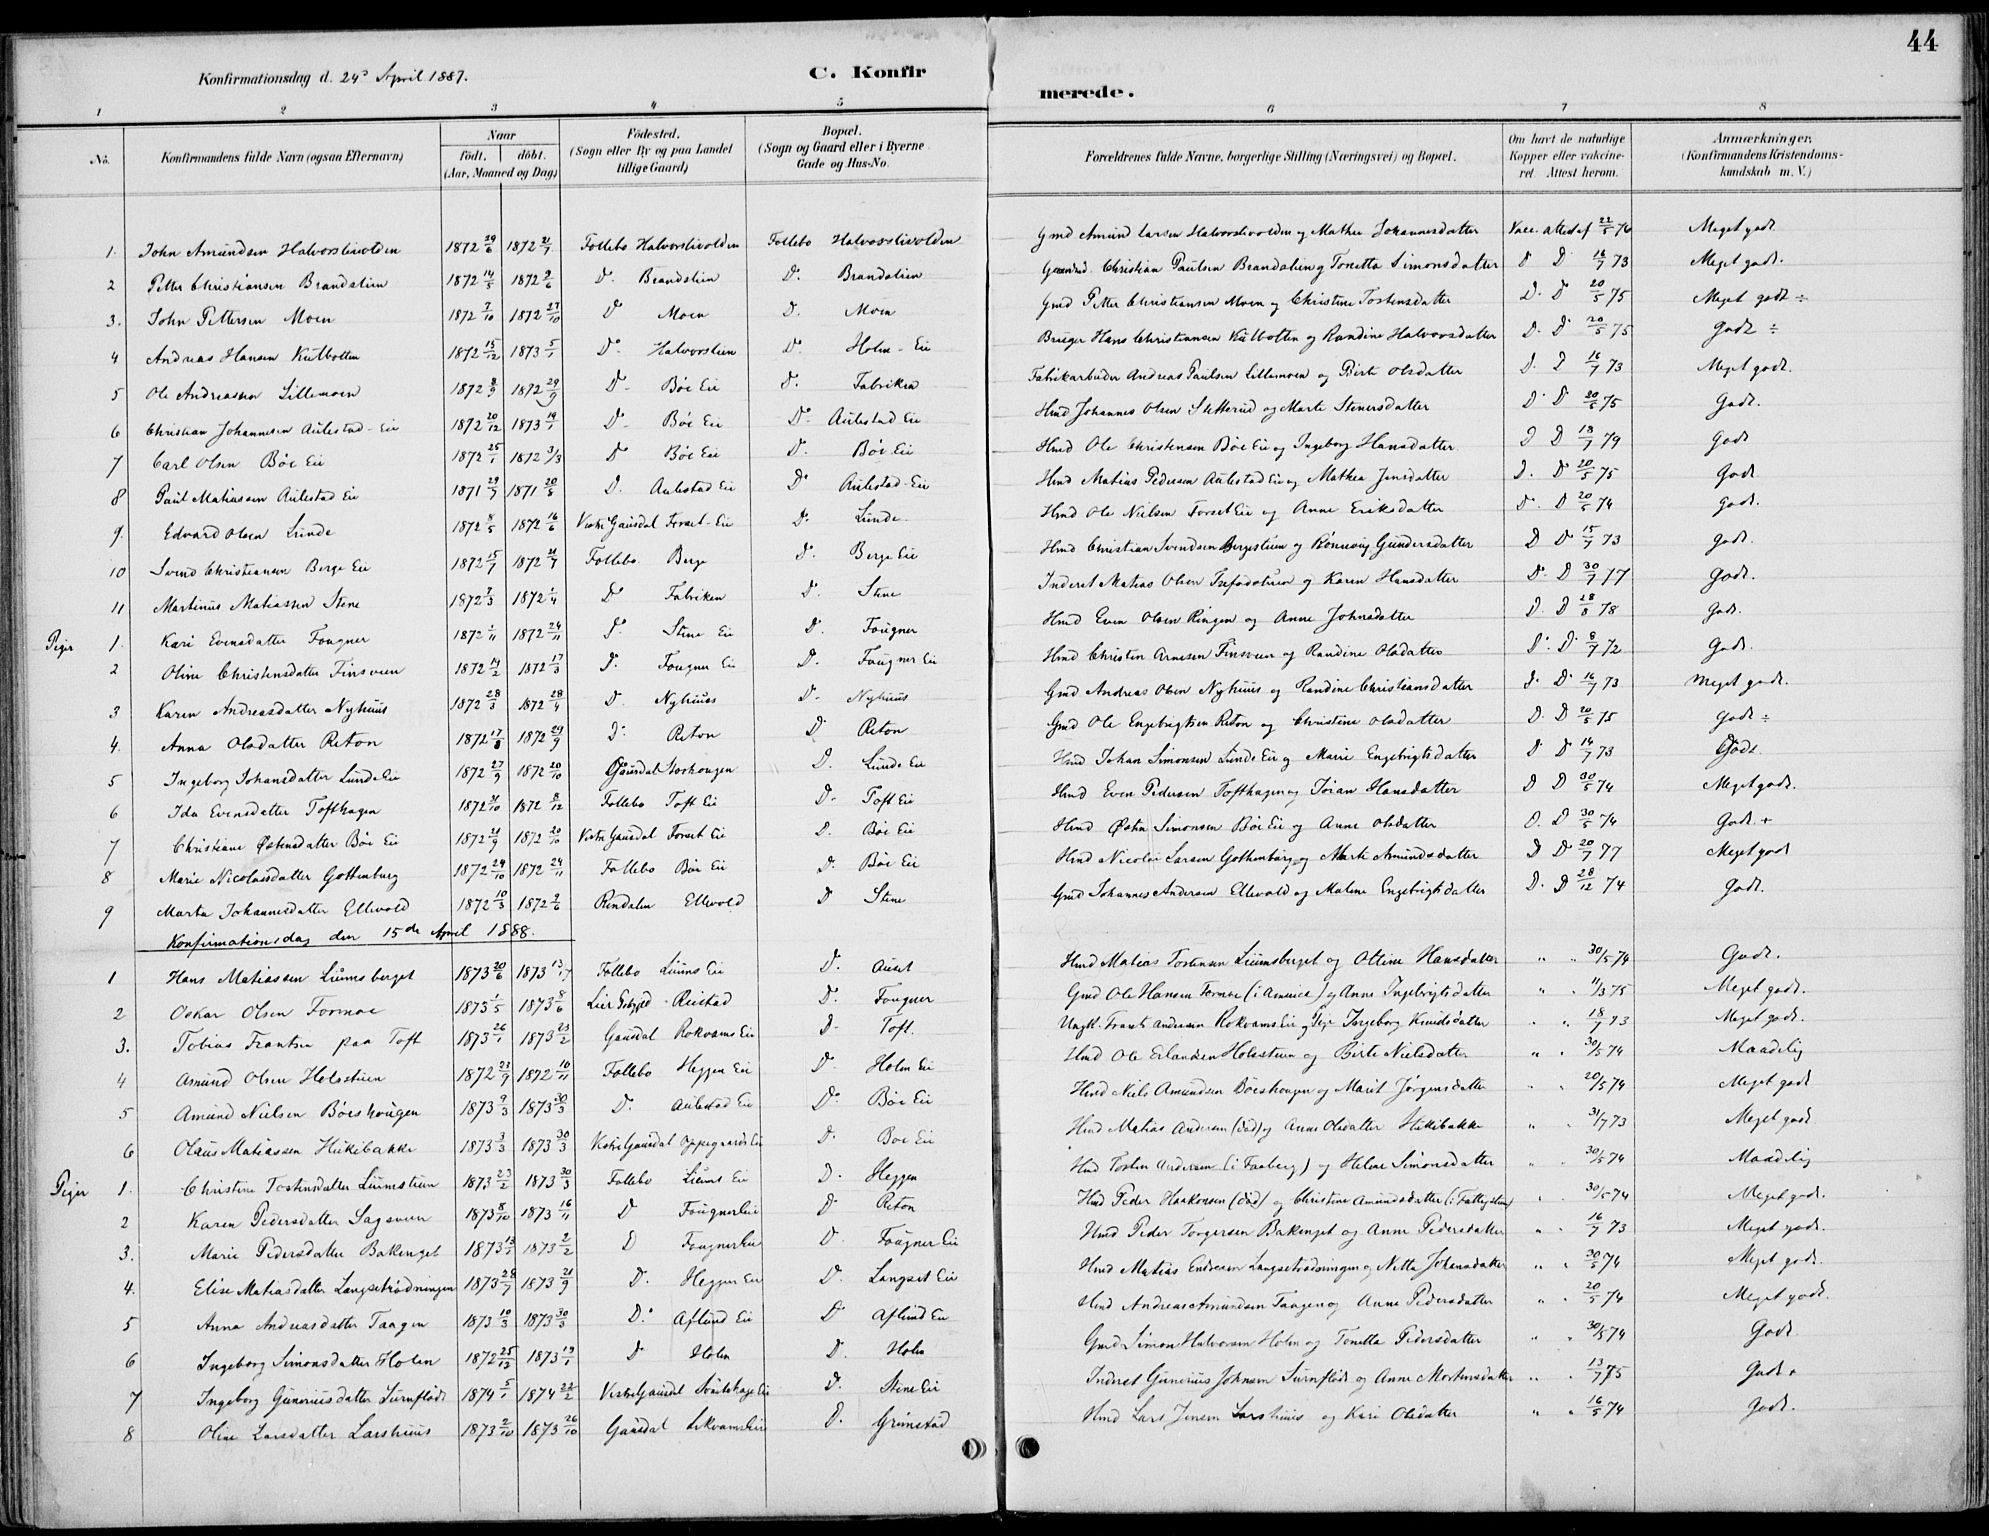 44
Konfirmationsdag d. 24de April 1887.
C. Konfirmerede.
1 2 3 4 5 6 7 8
No. Konfirmandens fulde Navn (ogsaa Efternavn) Naar født. døbt. (Aar, Maaned og Dag) Fødested. (Sogn eller By og paa Landet tillige Gaard) Bopæl. (Sogn og Gaard eller i Byerne Gade og Hus-No. Forældrenes fulde Navne, borgerlige Stilling (Næringsvei) og Bopæl. Om havt de naturlige Kopper eller vakcineret. Attest herom. Anmærkninger. (Konfirmandens Kristendomskundskab m. V.)
1. John Amundsen Halvorslivolden 1872 29/6 1872 21/7 Follebo Halvorslivolden Follebo Halvorslivolden Gmd Amund Larsen Halvorslivolden og Mathea Johannesdatter Vacc. attest af 22/5 76 Meget godt
2 Petter Christiansen Brandslien 1872 14/5 1872 9/6 Do Brandslien Do Brandslien Gaardmd. Christian Paulsen Brandslien og Tonetta Simonsdatter D D 16/7 73 Meget godt.
3. John Pettersen Moen 1872 7/10 1872 27/10 Do Moen D. Moen Gmd Petter Christiansen Moen og Christine Tostensdatter D. D 20/5 75 Meget godt ÷
4 Andreas Hansen Kulbotten 1872 15/12 1873 5/1 Do Halvorslien Do Holm-Eie Bruger Hans Christiansen Kulbotten og Randine Halvorsdatter D. D 20/5 75 Godt ÷
5 Ole Andreassen Lillemoen 1872 8/9 1872 29/9 D. Böe Eie D. Fabriken Fabrikarbeider Andreas Paulsen Lillemoen og Birte Olsdatter D. D 16/7 73 Meget godt.
6 Christian Johannesen Aulestad-Eie 1872 20/12 1873 19/1 D. Böe Eie Do Aulestad Eie Hmd Johannes Olsen Sletterud og Marte Stenersdatter D D 20/5 75 Godt.
7 Carl Olsen Böe Eie 1872 25/1 1872 3/3 D Böe Eie D. Böe Eie Hmd Ole Christensen Böe Eie og Ingeborg Hansdatter D D 18/7 79 Godt
8 Paul Matiassen Aulestad Eie 1871 29/7 1871 20/8 D. Aulestad Eie Do Aulestad-Eie Hmd Matias Pedersen Aulestad Eie og Mathea Jensdatter D. D 20/5 75 Godt
9. Edvard Olsen Lunde 1872 8/5 1872 16/6 Vestre Gausdal Forset-Eie D. Lunde Hmd Ole Nielsen Forset Eie og Anne Eriksdatter D. D 20/5 74 godt.
10 Svend Christiansen Berge Eie 1872 15/7 1872 21/7 Follebo Berge D. Berge Eie Hmd Christian Svendsen Bergestuen og Rönnevig Gundersdatter D D 15/7 73 godt.
11 Martinus Matiassen Stene 1872 7/3 1872 1/4 Do Fabriken D. Stene Inderst Matias Olsen og Karen Hansdatter D. D 30/7 77 Godt.
Piger 1. Kari Evensdatter Fougner 1872 1/11 1872 24/11 Do Stene Eie D. Fougner Hmd Even Olsen Ringen og Anne Johnsdatter D. D 28/8 78 Godt.
2 Oline Christensdatter Finsveen 1872 14/2 1872 17/3 D. Fougner Eie D. Fougner Eie Hmd Christen Arnesen Finsveen og Randine Olsdatter D. D. 8/7 72 Godt.
3 Karen Andreasdatter Nyhuus 1872 28/3 1872 28/4 D. Nyhuus D. Nyhuus Gmd Andreas Olsen Nyhuus og Randine Christiansdatter D. D. 16/7 73 Meget godt.
4. Anna Olsdatter Reton 1872 17/8 1872 29/9 D. Reton D. Reton Gmd Ole Engebrigtsen Reton og Christine Olsdatter D. D 20/5 75 Godt ÷
5 Ingeborg Johansdatter Lunde Eie 1872 27/9 1872 20/10 Gausdal Storhougen D. Lunde Eie Hmd Johan Simonsen Lunde Eie og Marie Engebrigtsdatter D D 14/7 73 Godt.
6 Ida Evensdatter Tofthagen 1872 31/10 1872 8/12 Follebo Toft Eie D. Toft Eie Hmd Even Pedersen Tofthagen og Jöran Hansdatter D D 30/5 74 Meget godt.
7 Christiane Østensdatter Böe Eie 1872 21/9 1872 20/10 Vestre Gausdal Forset Eie D. Böe Eie Hmd Østen Simonsen Böe Eie og Anne Olsdatter D. D 30/5 74 Godt. +
8 Marie Nicolaisdatter Gothenburg 1872 29/10 1872 24/11 Follebo Böe Eie D. Böe Eie Hmd Nicolai Larsen Gothenburg og Marte Amundsdatter D D 20/7 77 Meget godt
9 Marta Johannesdatter Ellevold 1872 10/3 1872 9/6 Rendalen Ellevold D Stene Gmd Johannes Andersen Ellevold og Malene Engebrigtsdatter D. D 28/12 74 Godt.
Konfirmationsdag den 15de April 1888.
1 Hans Matiassen Liumsberget 1873 20/6 1873 13/7 Follebo Liums Eie D. Auset Hmd Matias Tostensen Liumsberget og Ottine Hansdatter " " 30/5 74 Godt.
2 Oskar Olsen Formoe 1873 1/5 1873 8/6 Lier Reistad D. Fougner Gmd Ole Hansen Formoe (i America) og Anne Ingebrigtsdatter " " 11/3 75 Meget godt.
3. Tobias Frantsen paa Toft 1873 26/1 1873 23/2 Gausdal Rokvams Eie D. Toft. Ungk. Frants Andersen Rokvams Eie og Pige Ingeborg Knudsdatter " " 18/7 73 Meget godt.
4 Amund Olsen Holsstuen 1872 23/9 1872 10/11 Follebo Heggen Eie D. Holen Eie Hmd Ole Erlandsen Holsstuen og Birte Nielsdatter " " 30/5 74 Maadelig
5 Amund Nielsen Böeshougen 1873 9/3 1873 30/3 D. Aulestad Eie D. Böe Eie Hmd Niels Amundsen Böeshougen og Marit Jörgensdatter " " 20/5 74 Meget godt
6 Olaus Matiassen Hukibakke 1873 3/3 1873 30/3 Vestre Gausdal Oppegaards Eie D. Böe Eie Hmd Matias Andersen (död) og Anne Olsdatter Hukibakke " " 31/7 73 Meget godt
Piger 1. Christine Tostensdatter Liumstuen 1873 23/2 1873 30/3 Follebo Liums Eie D. Heggen Hmd Tosten Andersen (i Faaberg) og Helene Simonsdatter " " 30/5 74 Maadelig
2 Karen Pedersdatter Sagsveen 1873 8/10 1873 16/11 D Fougner Eie D Reton Hmd Peder Haakensen (död) og Christine Amundsdatter (i Fattigstuen) " " 30/5 74 Meget godt.
3. Marie Pedersdatter Bakenget 1873 13/1 1873 2/2 D Fougner Eie D. Fougner Eie Hmd Peder Torgersen Bakenget og Anne Pedersdatter " " 16/7 73 Meget godt.
4. Elise Matiasdatter Langsetrödningen 1873 28/7 1873 21/9 D. Heggen Eie D. Langset Eie Hmd Matias Endresen Langsetrödningen og Netta Johansdatter " " 30/5 74 Meget godt.
5 Anna Andreasdatter Taagen 1873 10/3 1873 30/3 D. Aflund Eie D Aflund Eie Hmd Andreas Amundsen Taagen og Anne Pedersdatter " " 20/5 74 Meget godt.
6 Ingeborg Simonsdatter Holen 1872 25/12 1873 19/1 D Holen D. Holen Gmd Simon Halvorsen Holen og Tonetta Pedersdatter " " 30/5 74 Godt
7 Ingeborg Gunerius datter Surnflödt 1874 5/1 1874 22/2 Vestre Gausdal Eie D. Stene Eie Inderst Gunerius Johnsen Surnflödt og Anne Mortensdatter " " 13/7 75 Godt +
8 Oline Larsdatter Larshuus 1873 2/10 1873 26/10 Gausdal D. Grimstad Hmd Lars Jensen Larshuus og Kari Olsdatter " " 16/5 74 Godt.